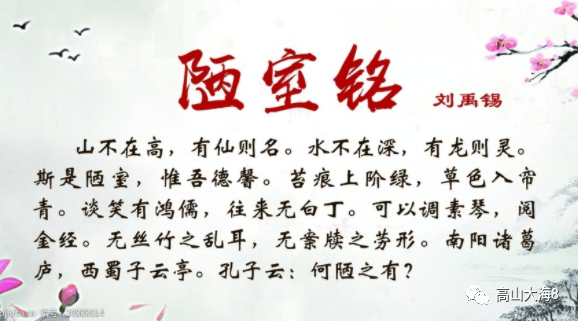 陋室铭
刘禹锡
山不在高，有仙则名。水不在深，有龙则灵。
斯是陋室，惟吾德馨。苔痕上阶绿，草色入帘
青。谈笑有鸿儒，往来无白丁。可以调素琴，阅
金经。无丝竹之乱耳，无案牍之劳形。南阳诸葛
庐，西蜀子云亭。孔子云：何陋之有？
高山大海8